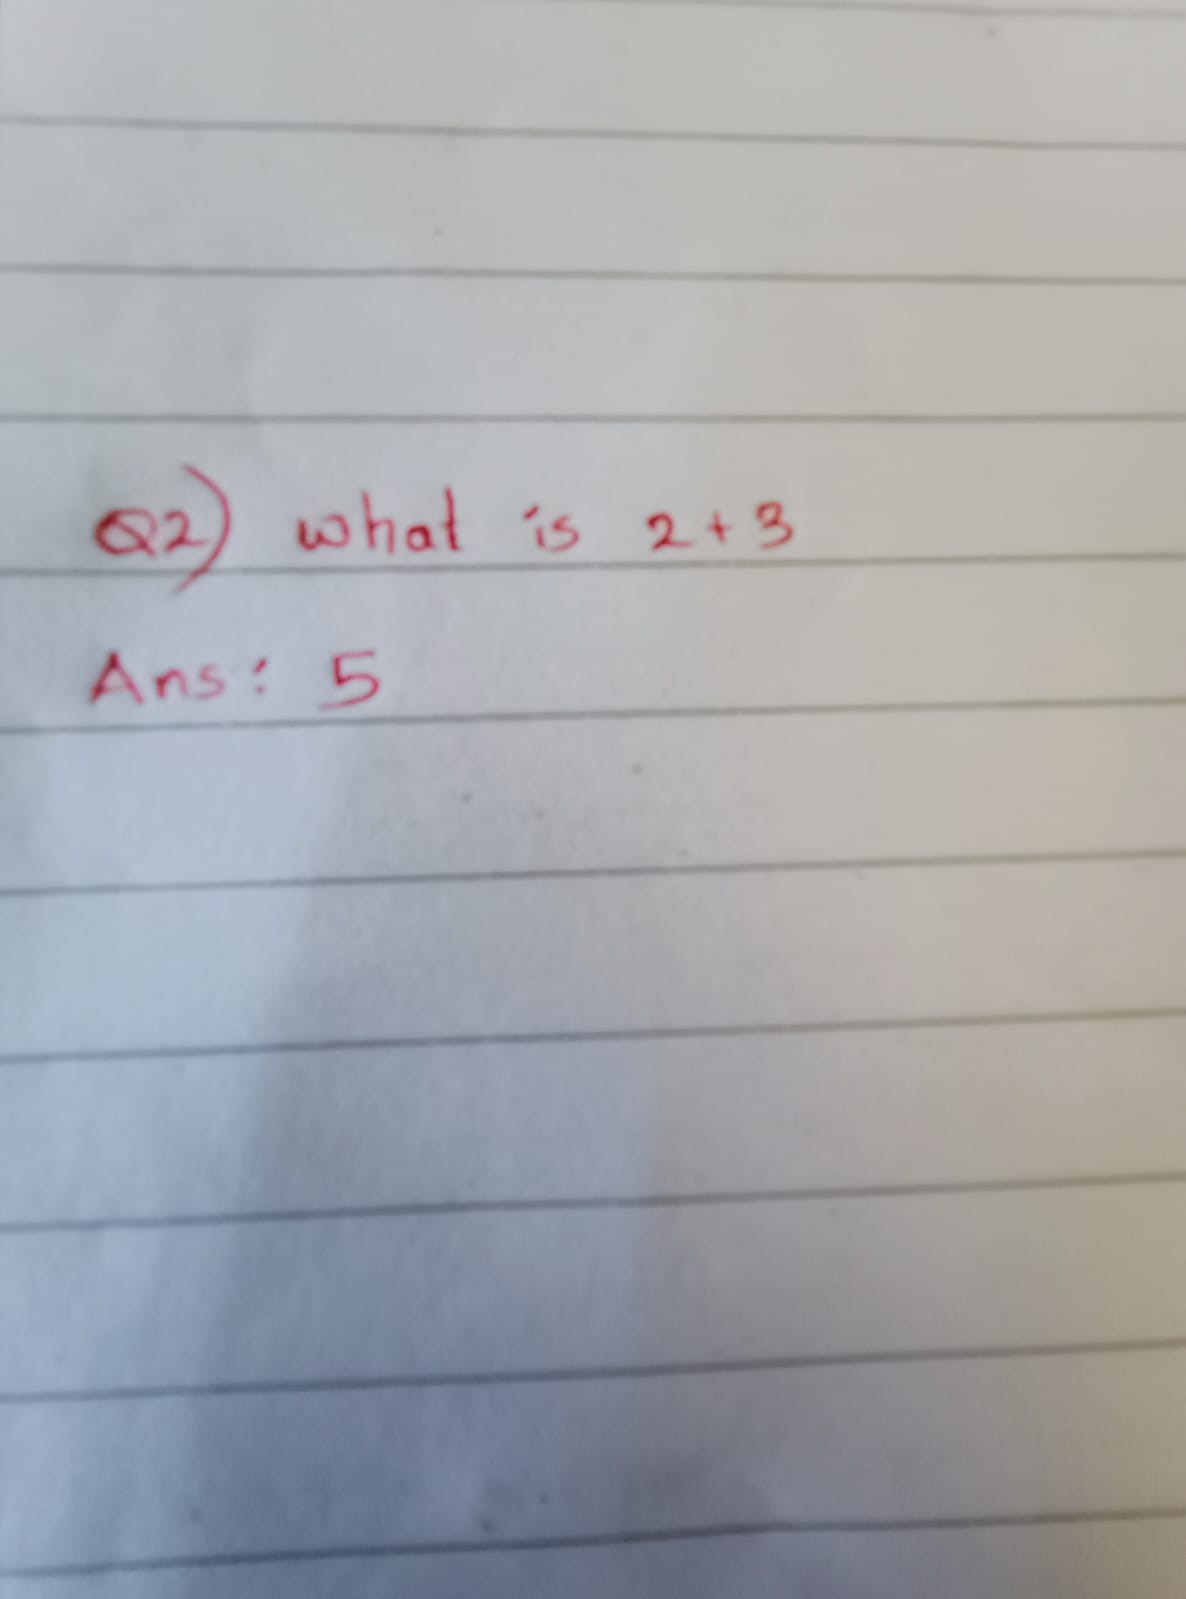 Q2) what is 2+3
Ans: 5